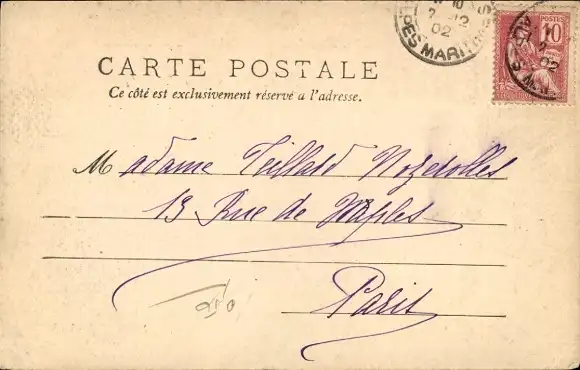 CARTE POSTALE
Ce côté est exclusivement réservé a l'adresse.
POSTES
10
02
PES MARIT
02
Madame Teillard Nozerolles
13 Rue de Naples
Paris